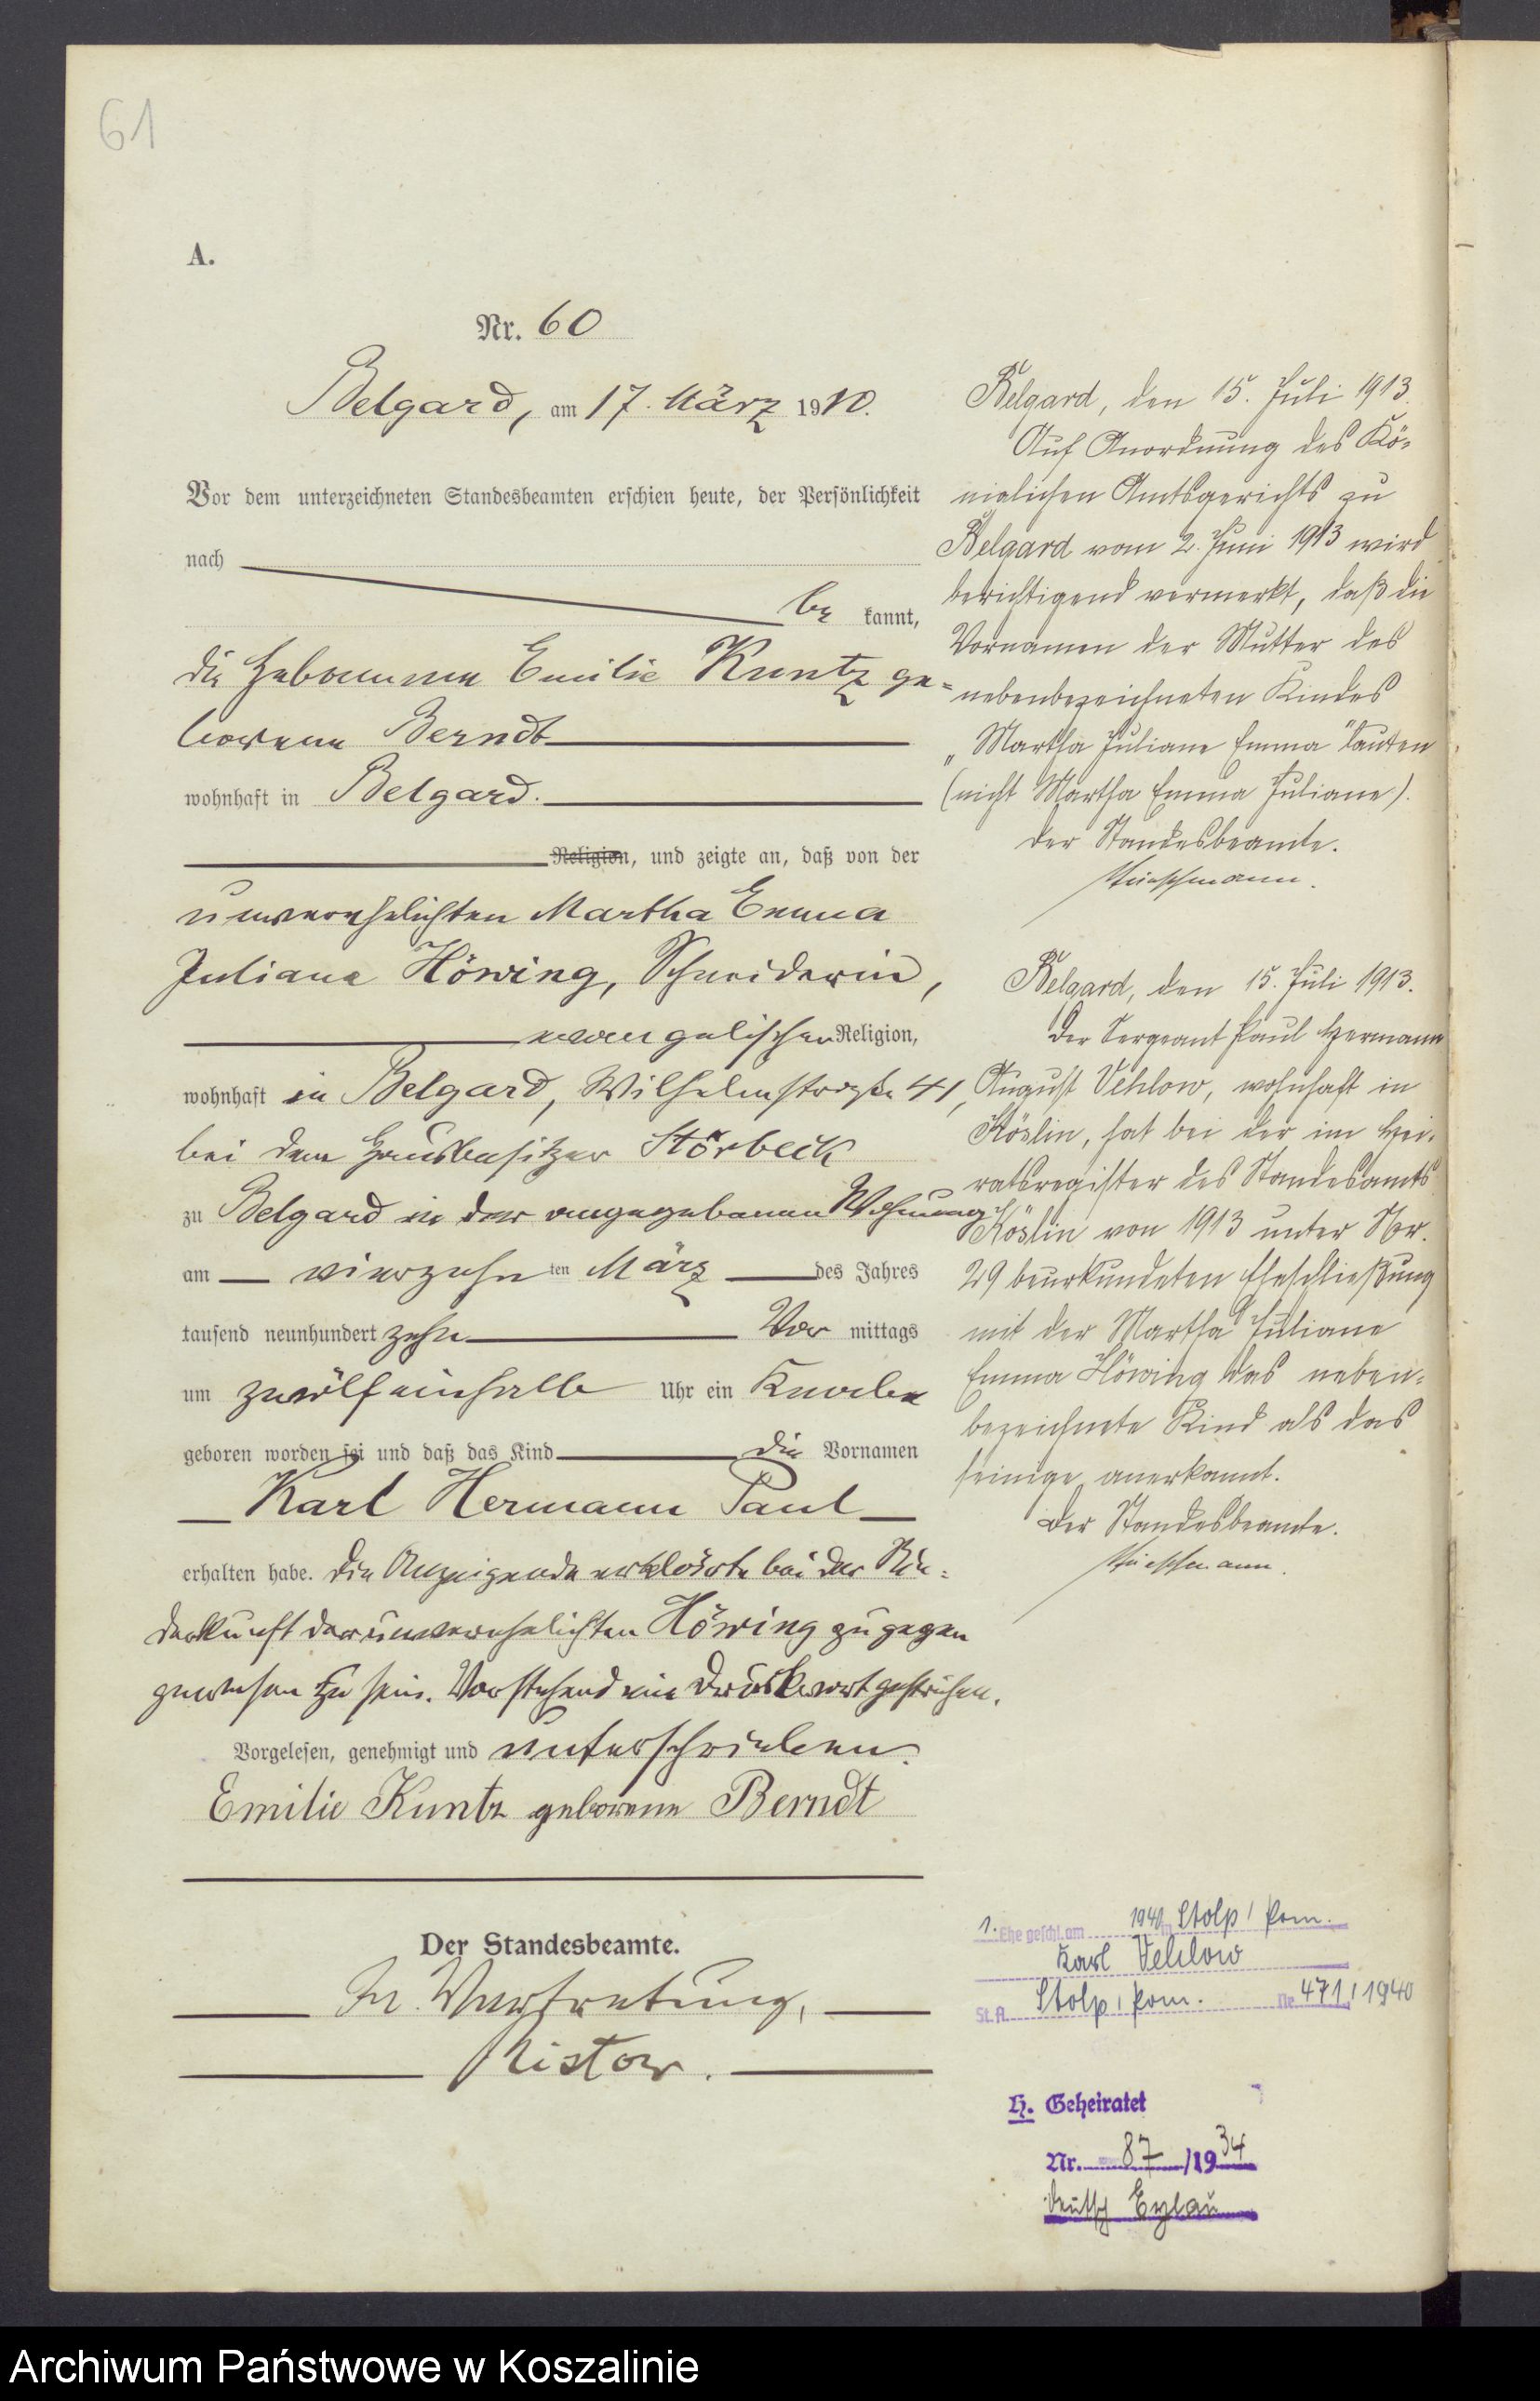 61
A.
Nr. 60
Belgard, am 17. März 1910.
Vor dem unterzeichneten Standesbeamten erschien heute, der Persönlichkeit
nach
be kannt,
die Hebamme Emilie Kuntz ge-
borene Berndt
wohnhaft in Belgard.
Religion, und zeigte an, daß von der
unverehelichten Martha Emma
Juliane Höwing, Schneiderin,
evangelischer Religion,
wohnhaft in Belgard, Wilhelmstraße 41,
bei dem Hausbesitzer Störbeck
zu Belgard in der angegebenen Wohnung
am vierzehn ten März des Jahres
tausend neunhundert zehn Vor mittags
um zwölfeinhalb Uhr ein Knabe
geboren worden sei und daß das Kind die Vornamen
Karl Hermann Paul
erhalten habe. Die Anzeigende erklärte bei der Nie-
derkunft der unverehelichten Höwing zugegen
gewesen zu sein. Vorstehend ein Druckwort gestrichen.
Vorgelesen, genehmigt und unterschrieben.
Emilie Kuntz geborene Berndt
Der Standesbeamte.
In Vertretung,
Ristow.
Belgard, den 15. Juli 1913.
Auf Anordnung des Kö-
niglichen Amtsgerichts zu
Belgard vom 2. Juni 1913 wird
berichtigend vermerkt, daß die
Vornamen der Mutter des
nebenbezeichneten Kindes
„Martha Juliane Emma" lauten
(nicht Martha Emma Juliane).
Der Standesbeamte.
Belgard, den 15. Juli 1913.
Der Sergeant Paul Hermann
August Vehlow, wohnhaft in
Köslin, hat bei der im Hei-
ratsregister des Standesamts
Köslin von 1913 unter Nr.
29 beurkundeten Eheschließung
mit der Martha Juliane
Emma Höwing das neben-
bezeichnete Kind als das
seinige anerkannt.
Der Standesbeamte.
1. Ehe geschl. am 1940 in Stolp / Pom.
Karl Vehlow
St. A. Stolp / Pom. Nr. 471 / 1940
H. Geheiratet
Nr. 87 /1934
Deutsch Eylau
Archiwum Państwowe w Koszalinie